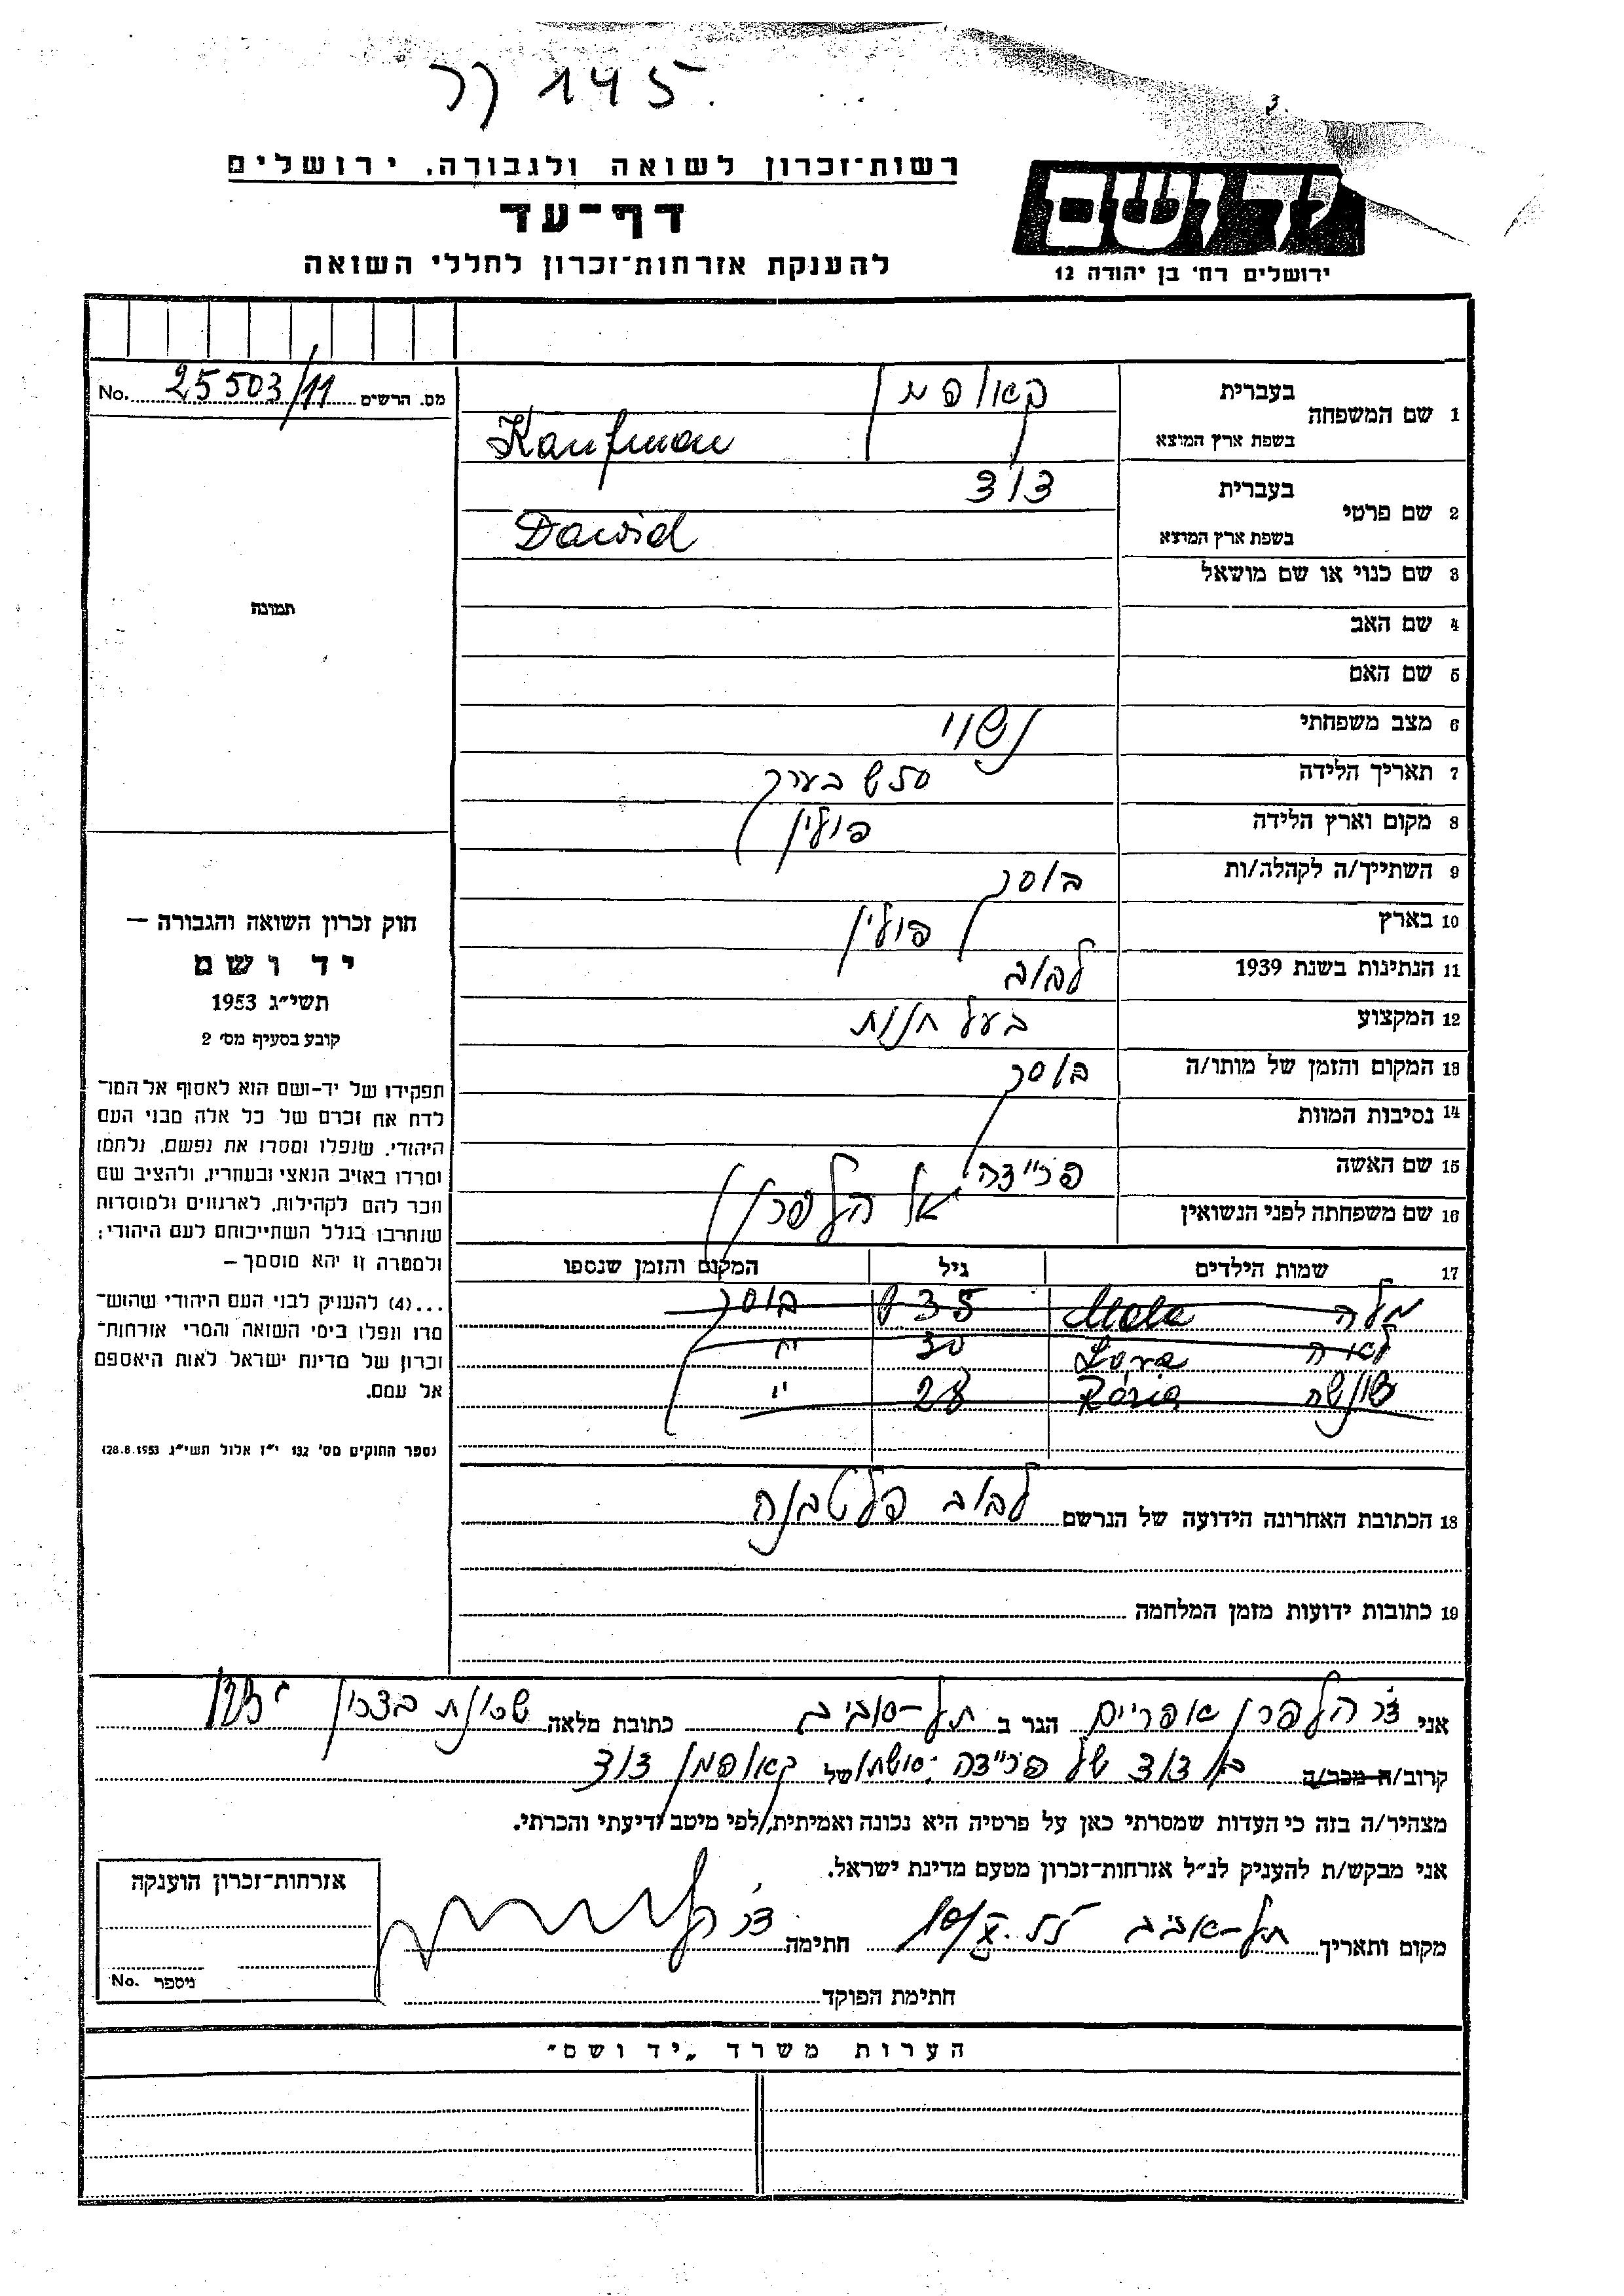 145 קר
רשות־זכרון לשואה ולגבורה, ירושלים
דף־עד
להענקת אזרחות־זכרון לחללי השואה
יד ושם
ירושלים רח' בן יהודה 12
מס. הרשים 25503/11 No.
1 שם המשפחה
בעברית קאופמן
בשפת ארץ המוצא Kaufman
2 שם פרטי
בעברית דוד
בשפת ארץ המוצא Dawid
3 שם כנוי או שם מושאל
4 שם האב
5 שם האם
6 מצב משפחתי נשוי
7 תאריך הלידה בערך
8 מקום וארץ הלידה פולין
9 השתייך/ה לקהלה/ות בוסק
10 בארץ פולין
11 הנתינות בשנת 1939 לבוב
12 המקצוע בעל חנות
13 המקום והזמן של מותו/ה בוסק
14 נסיבות המוות
15 שם האשה פריידה
16 שם משפחתה לפני הנשואין הלפרן
17 שמות הילדים גיל המקום והזמן שנספו
מלה Mela 35 בוסק
30 "
שושנה Róźia 28 "
18 הכתובת האחרונה הידועה של הנרשם לבוב
19 כתובות ידועות מזמן המלחמה
תמונה
חוק זכרון השואה והגבורה —
יד ושם
תשי"ג 1953
קובע בסעיף מס' 2
תפקידו של יד-ושם הוא לאסוף אל המו־
לדת את זכרם של כל אלה מבני העם
היהודי, שנפלו ומסרו את נפשם, נלחמו
ומרדו באויב הנאצי ובעוזריו, ולהציב שם
וזכר להם לקהילות, לארגונים ולמוסדות
שנחרבו בגלל השתייכותם לעם היהודי;
ולמטרה זו יהא מוסמך —
...(4) להעניק לבני העם היהודי שהוש־
מדו ונפלו בימי השואה והמרי אזרחות־
זכרון של מדינת ישראל לאות היאספם
אל עמם.
(ספר החוקים מס' 132 י"ז אלול תשי"ג 28.8.1953)
אני ד"ר הלפרן אפרים הגר ב תל-אביב כתובת מלאה שכונת בצרון
קרוב/ה מכר/ה בן דוד של פריידה אשתו של קאופמן דוד
מצהיר/ה בזה כי העדות שמסרתי כאן על פרטיה היא נכונה ואמיתית, לפי מיטב ידיעתי והכרתי.
אני מבקש/ת להעניק לנ"ל אזרחות-זכרון מטעם מדינת ישראל.
מקום ותאריך תל-אביב חתימה ד"ר
חתימת הפוקד
אזרחות־זכרון הוענקה
מיספר No.
הערות משרד "יד ושם"